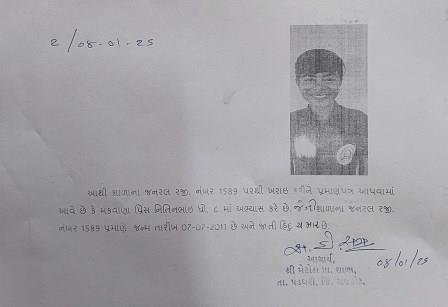 2/08-01-25
આથી શાળાના જનરલ રજી. નંબર 1589 પરથી ખરાઇ કરીને પ્રમાણપત્ર આપવામાં
આવે છે કે મકવાણા પ્રિસ નિતિનભાઇ ધો. ૮ માં અભ્યાસ કરે છે. જેની શાળાના જનરલ રજી.
નંબર 1589 પ્રમાણે જન્મ તારીખ 07-07-2011 છે અને જાતી હિંદુ ચમાર છે.
આચાર્ય,
08/01/25
શ્રી મેટોડા પ્રા. શાળા,
તા. પડધરી, જિ. રાજકોટ